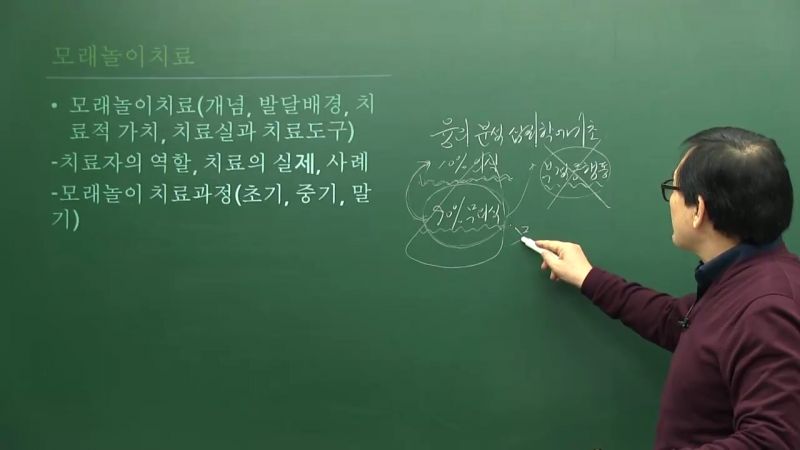 모래놀이치료
• 모래놀이치료(개념, 발달배경, 치
료적 가치, 치료실과 치료도구)
-치료자의 역할, 치료의 실제, 사례
-모래놀이 치료과정(초기, 중기, 말
기)
융의 분석심리학에 기초
10% 의식
90% 무의식